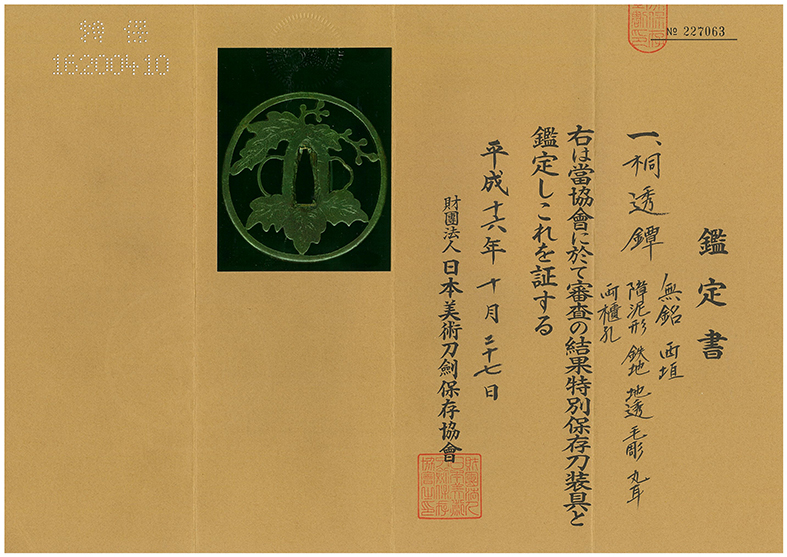 鑑定書
一、桐透鐔
無銘 西垣
障泥形 鉄地 地透 毛彫 丸耳
両櫃孔
右は當協會に於て審査の結果特別保存刀装具と
鑑定しこれを証する
平成十六年 十月 二十七日
財團法人 日本美術刀劍保存協會
№ 227063
特 保
16200410